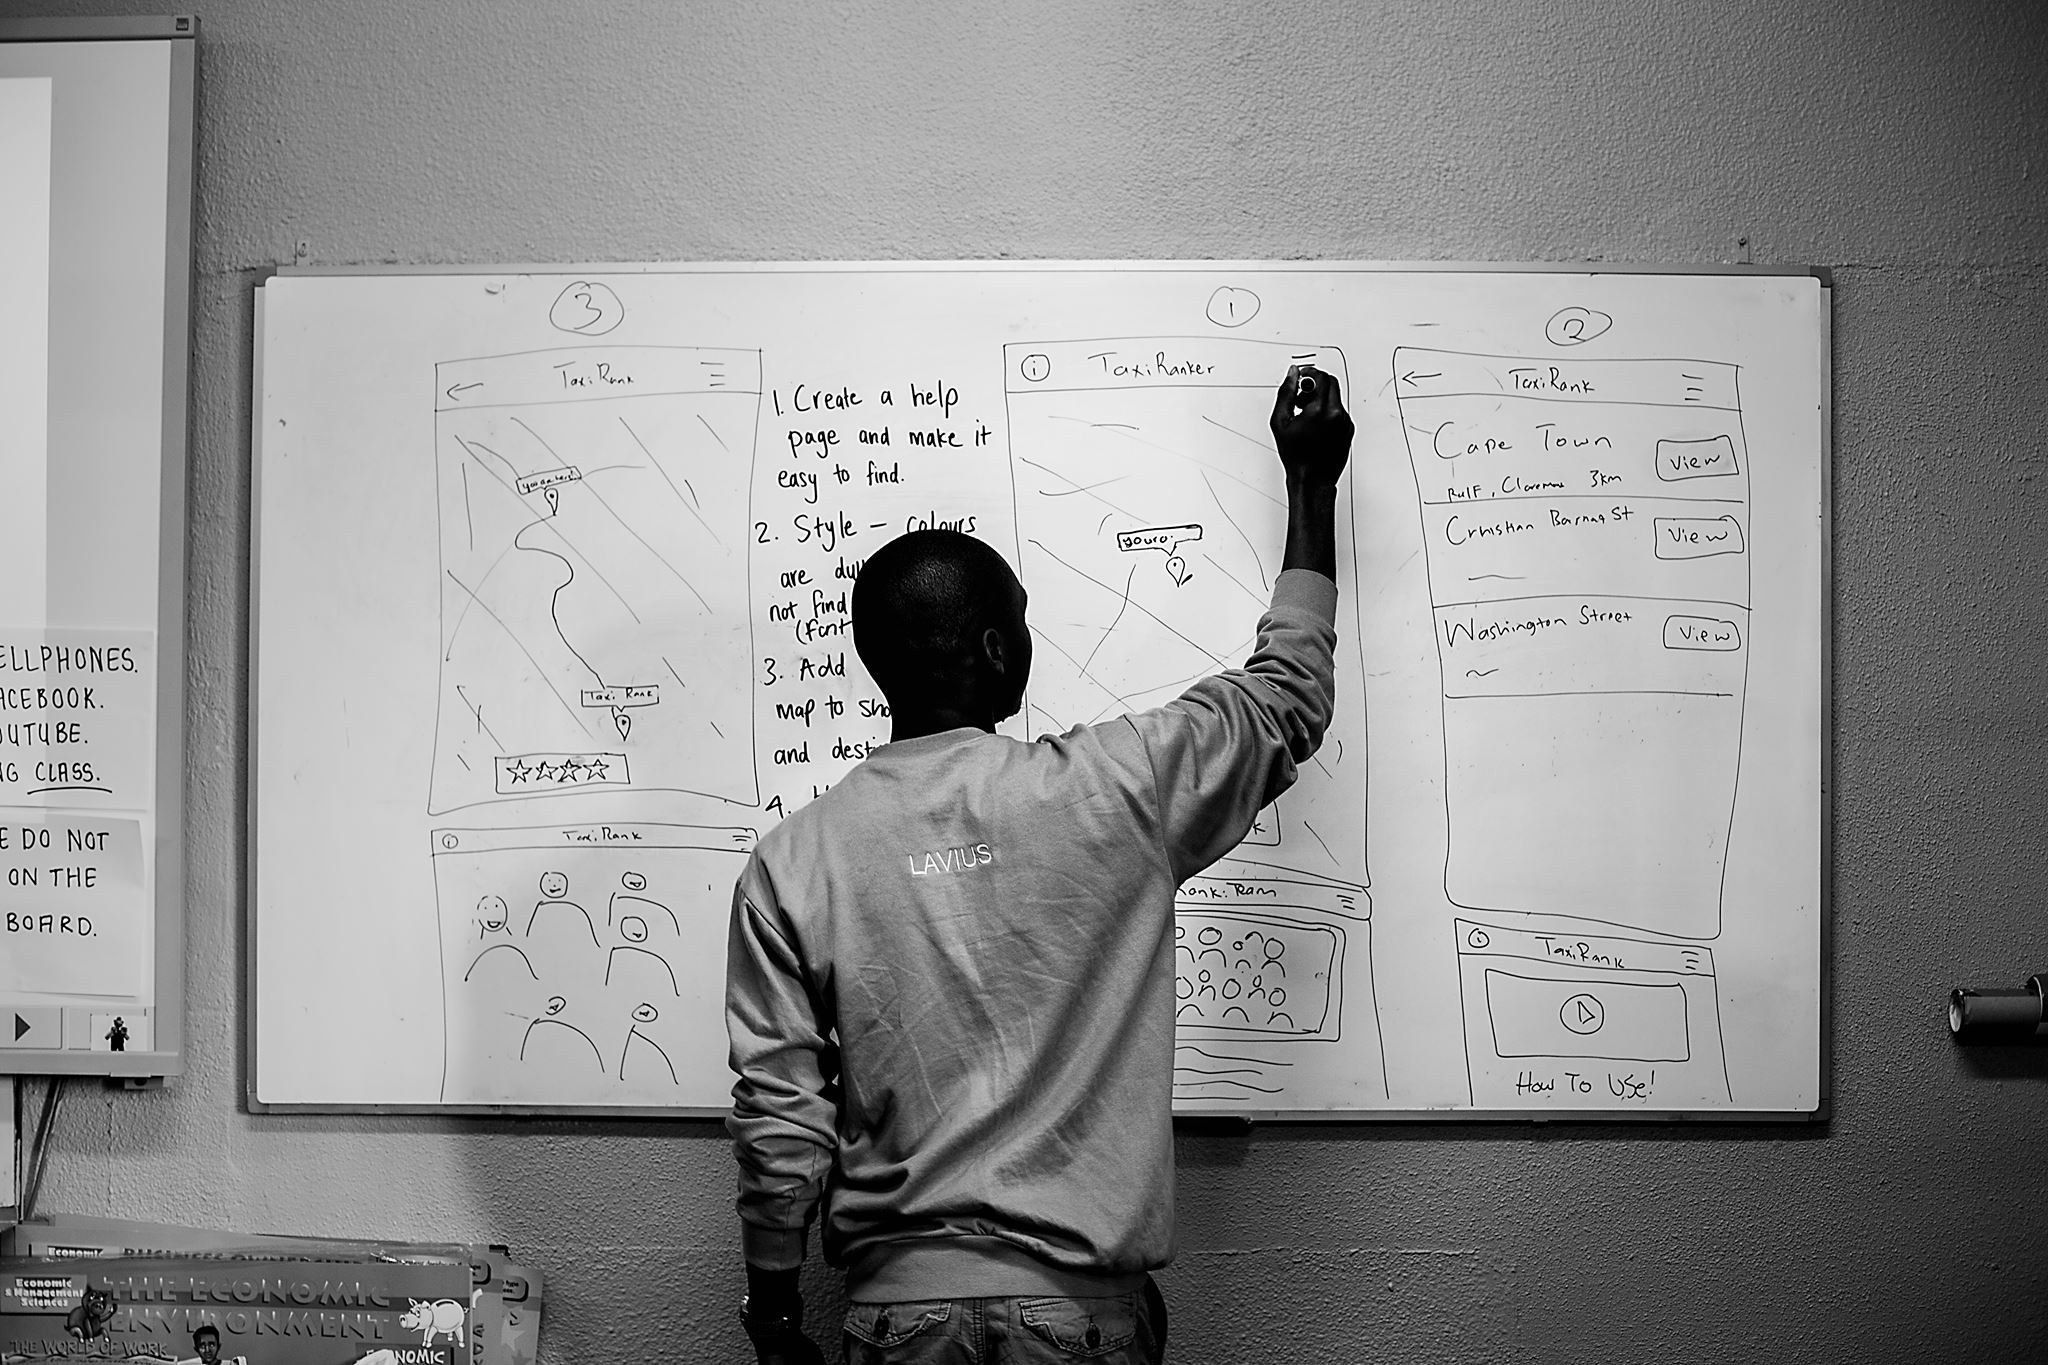 ELLPHONES.
ACEBOOK.
OUTUBE.
NG CLASS.
E DO NOT
ON THE
BOARD.
3
TaxiRank
you are here!
Taxi Rank
TaxiRank
1. Create a help
page and make it
easy to find.
2. Style – colours
are dull
not find
(font
3. Add
map to sho
and desti
4.
1
i
TaxiRanker
youre
k
Rank:Team
2
TaxiRank
Cape Town
View
3km
St
View
Washington Street
View
i
TaxiRank
How To Use!
i
LAVIUS
Economic
Economic
& Management
Sciences
THE ECONOMIC
ENVIRONMENT
THE WORLD OF WORK
NOMIC